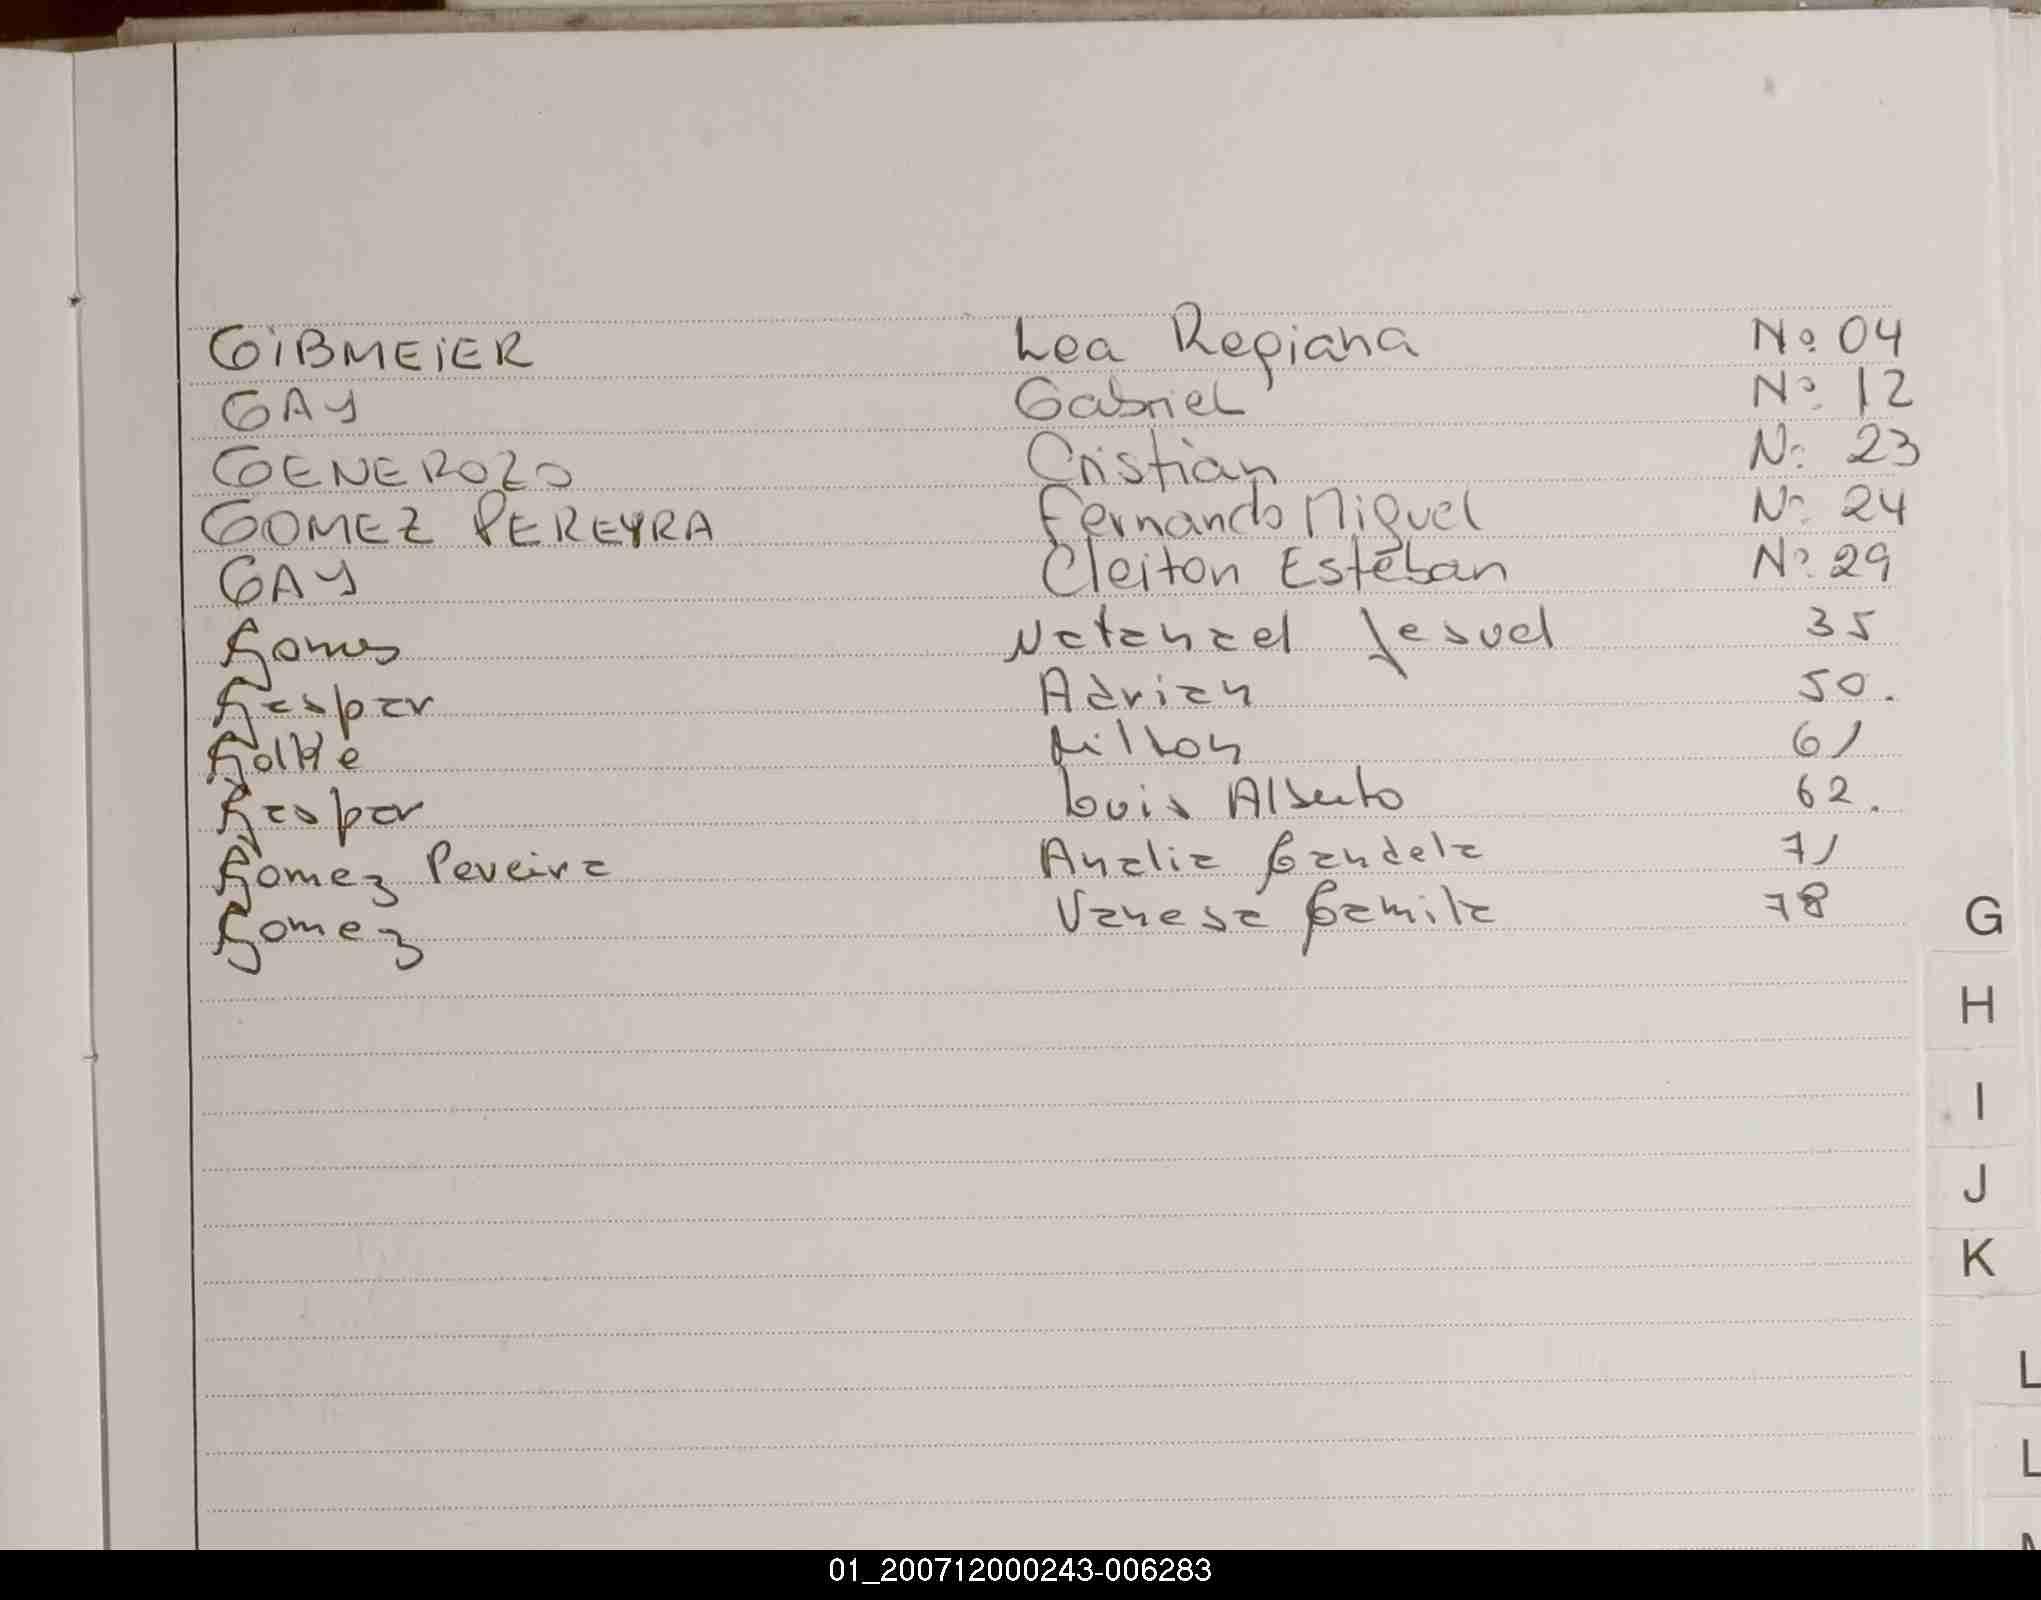 GIBMEIER Lea Regiana Nº 04
GAY Gabriel Nº 12
GENEROZO Cristian Nº 23
GOMEZ PEREYRA Fernando Miguel Nº 24
GAY Cleiton Esteban Nº 29
Gomes Natanael Jesuel 35
Gaspar Adrian 50.
61
Gaspar Luis Alberto 62.
Gomez Pereira Analia Candela 71
Gomez Vanesa Camila 78
G
H
I
J
K
L
L
01_200712000243-006283